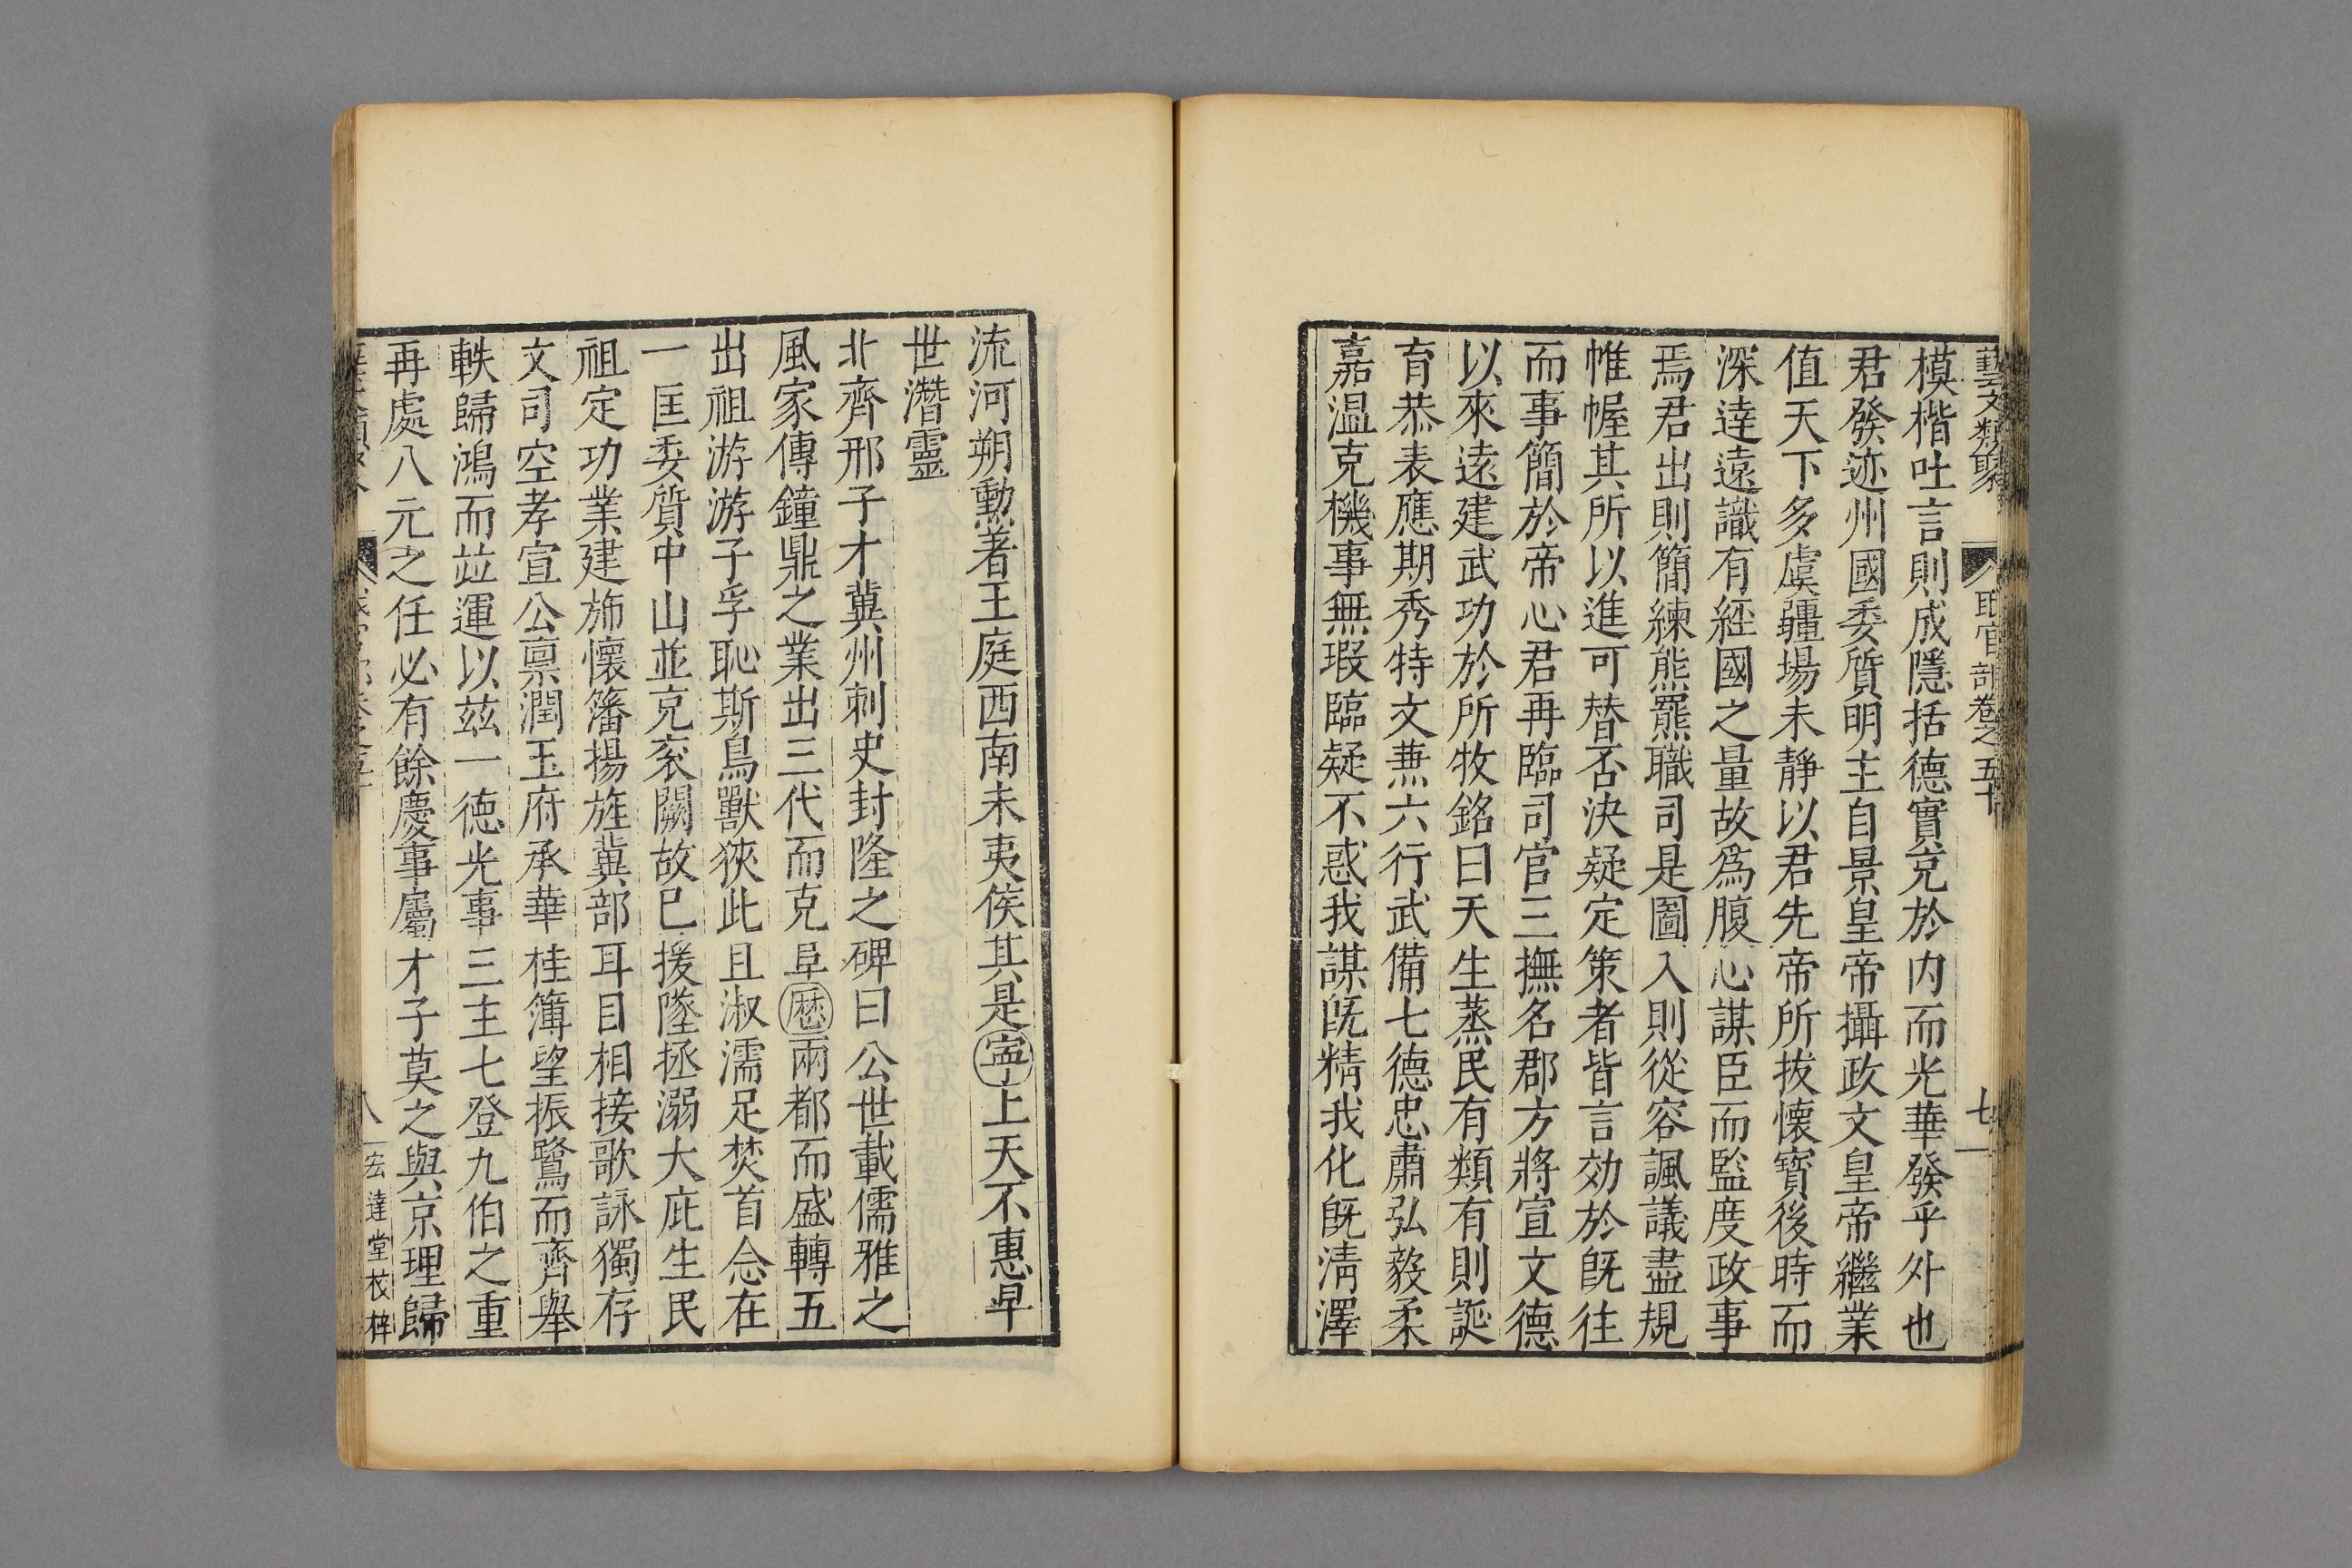 藝文類聚 職官部卷之五十 七
模楷吐言則成隱括德實充於内而光華發乎外也
君發迹州國委質明主自景皇帝攝政文皇帝繼業
值天下多虞疆場未靜以君先帝所拔懷寶後時而
深達遠識有經國之量故爲腹心謀臣而監度政事
焉君出則簡練熊羆職司是圖入則從容諷議盡規
帷幄其所以進可替否決疑定策者皆言効於旣往
而事簡於帝心君再臨司官三撫名郡方將宣文德
以來遠建武功於所牧銘曰天生蒸民有類有則誕
育恭表應期秀特文蕪六行武備七德忠肅弘毅柔
嘉温克機事無瑕臨疑不惑我謀旣精我化旣淸澤
流河朔勳著王庭西南未夷俟其是寧上天不惠早
世潛靈
北齊邢子才冀州刺史封隆之碑曰公世載儒雅之
風家傳鐘鼎之業出三代而克阜歷兩都而盛轉五
出祖游游子孚恥斯鳥獸狹此且淑濡足焚首念在
一匡委質中山並克衮闕故已援墜拯溺大庇生民
祖定功業建斾懷籓揚旌冀部耳目相接歌詠獨存
文司空孝宣公禀潤玉府承華桂簿望振鷺而齊舉
軼歸鴻而竝運以兹一德光事三主七登九伯之重
再處八元之任必有餘慶事屬才子莫之與京理歸
八 宏達堂校梓